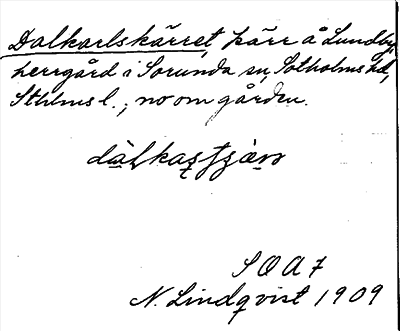 Dalkarlskärret, kärr å Lundby
herrgård i Sorunda sn, Sotholms hd,
Sthlms l.; no om gården.
S O A 7
N. Lindqvist 1909